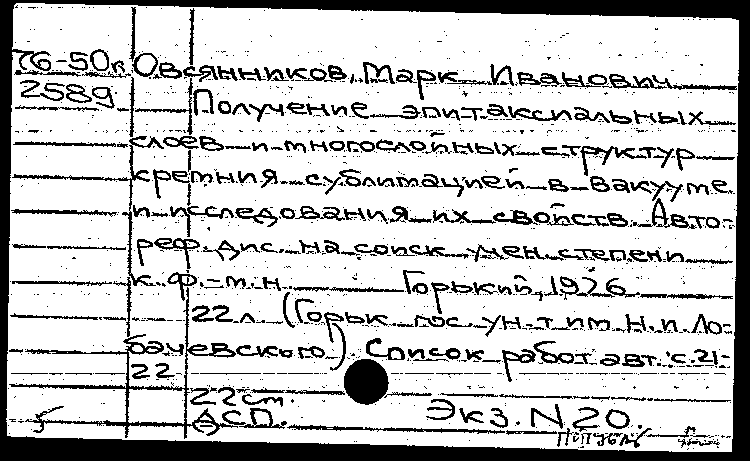 76-50к Овсянников, Марк Иванович
2589 Получение эпитаксиальных
слоев и многослойных структур
кремния сублимацией в вакууме
и исследования их свойств. Авто-
реф. дис. на соиск учен. степени
к. ф.-м. н. Горький, 1976
22 л (Горьк гос. ун-т им Н. И. Ло-
бачевского) Список работ авт. с. 21-
22
22 см.
ДСП. Экз. N 20.